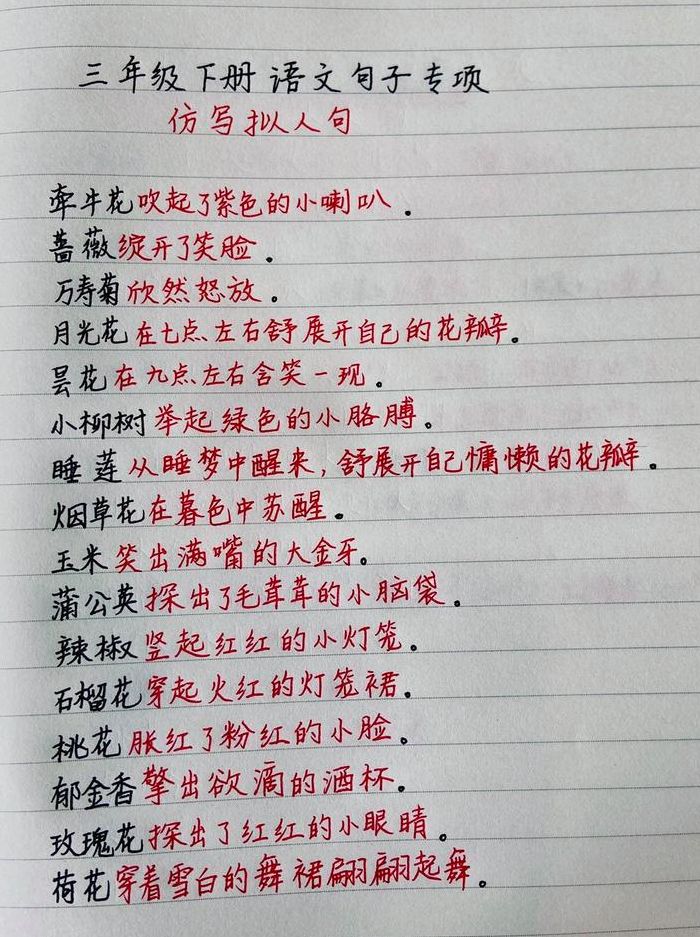 三年级下册语文句子专项
仿写拟人句
牵牛花吹起了紫色的小喇叭.
蔷薇绽开了笑脸。
万寿菊欣然怒放。
月光花在七点左右舒展开自己的花瓣。
昙花在九点左右含笑一现。
小柳树举起绿色的小胳膊。
睡莲从睡梦中醒来,舒展开自己慵懒的花瓣。
烟草花在暮色中苏醒。
玉米笑出满嘴的大金牙。
蒲公英探出了毛茸茸的小脑袋。
辣椒竖起红红的小灯笼。
石榴花穿起火红的灯笼裙。
桃花胀红了粉红的小脸。
郁金香擎出欲滴的酒杯。
玫瑰花探出了红红的小眼睛。
荷花穿着雪白的舞裙翩翩起舞。